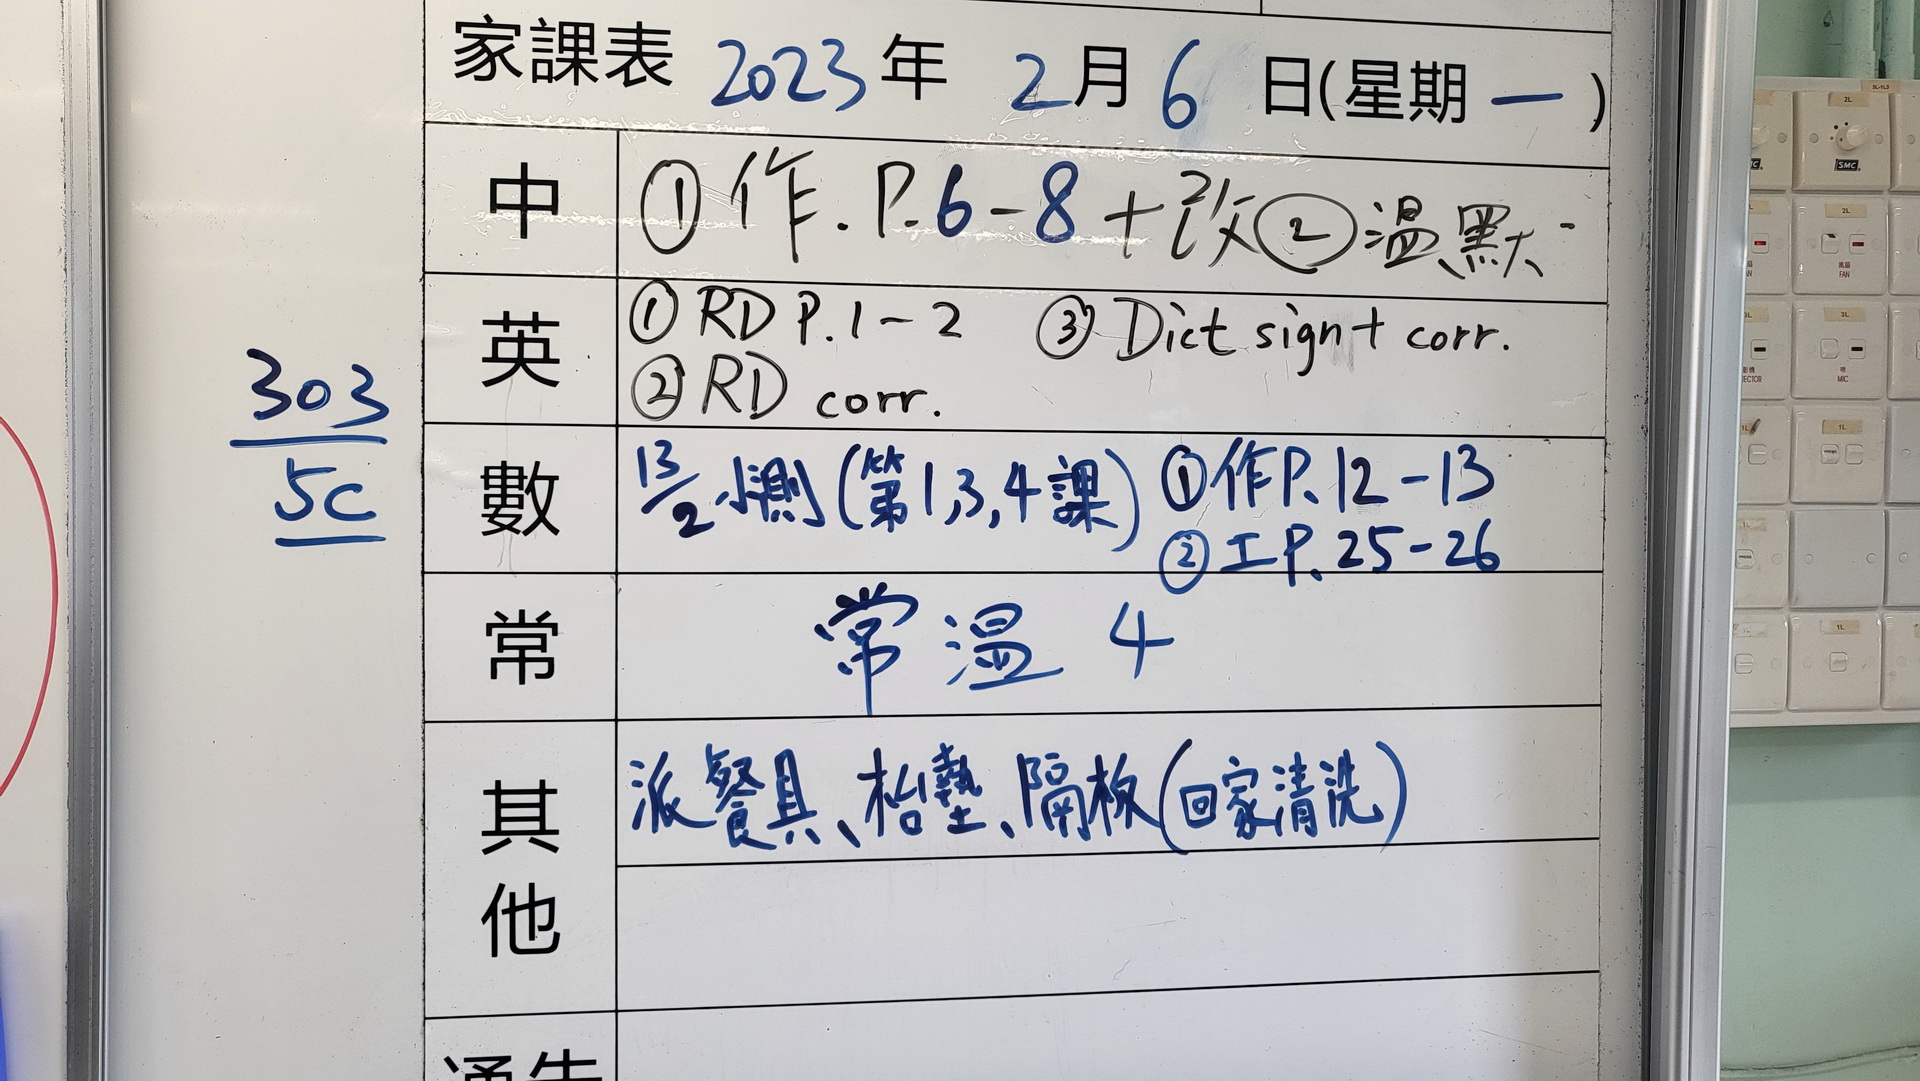 家課表 2023年 2月6日(星期一)
中 ①作.P.6-8+改②温默
英 ①RD P.1-2 ③Dict sign+ corr.
②RD corr.
數 13/2小測(第1,3,4課) ①作P.12-13
②工P.25-26
常 常温4
其他 派餐具、枱墊、隔板(回家清洗)
303
5C
通告
2L
SMC
2L
FAN
3L
MIC
1L
1L